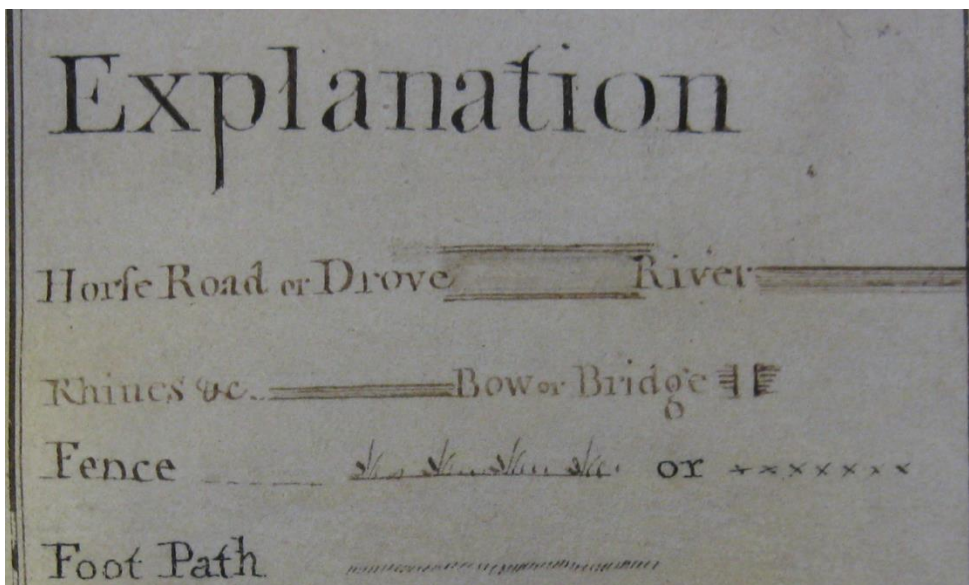 Explanation
Horſe Road or Drove River
Rhines &c. Bow or Bridge
Fence or
Foot Path